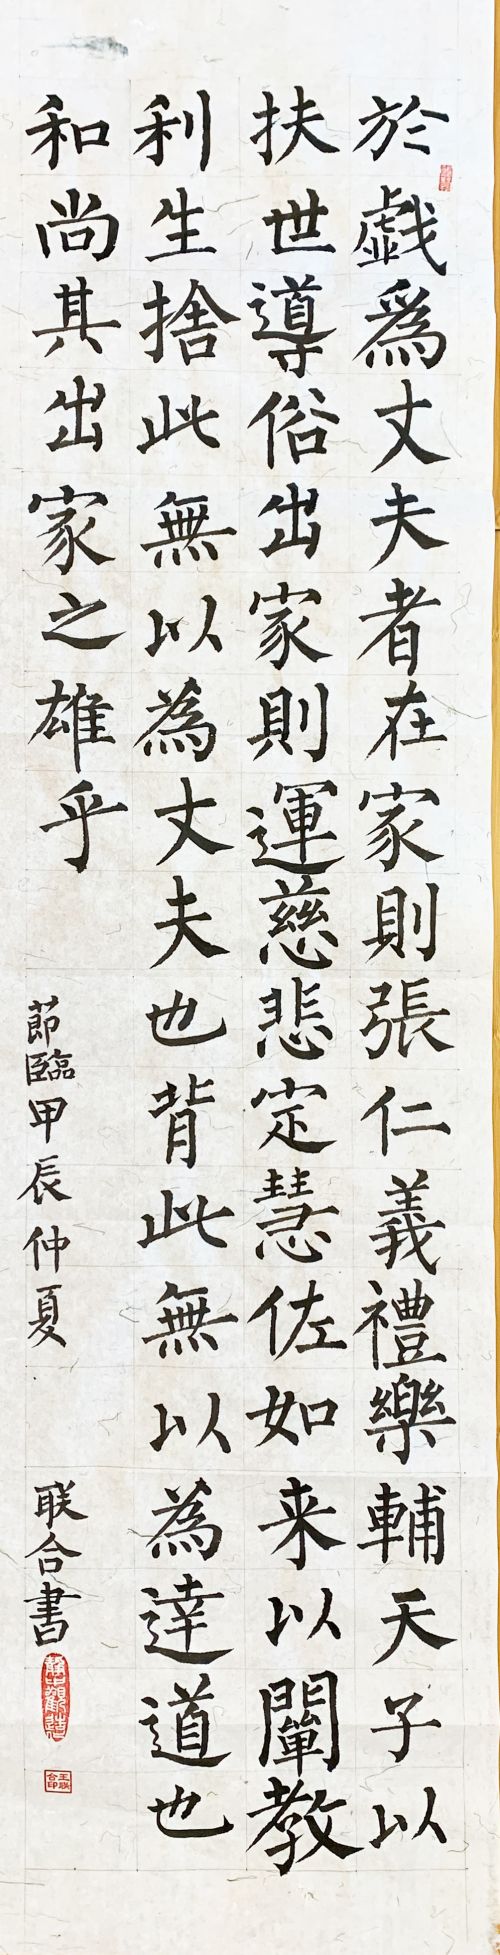 於戯爲丈夫者在家則張仁義禮樂輔天子以
扶世導俗出家則運慈悲定慧佐如来以闡教
利生捨此無以為丈夫也背此無以為達道也
和尚其出家之雄乎
莭臨甲辰仲夏
联合書